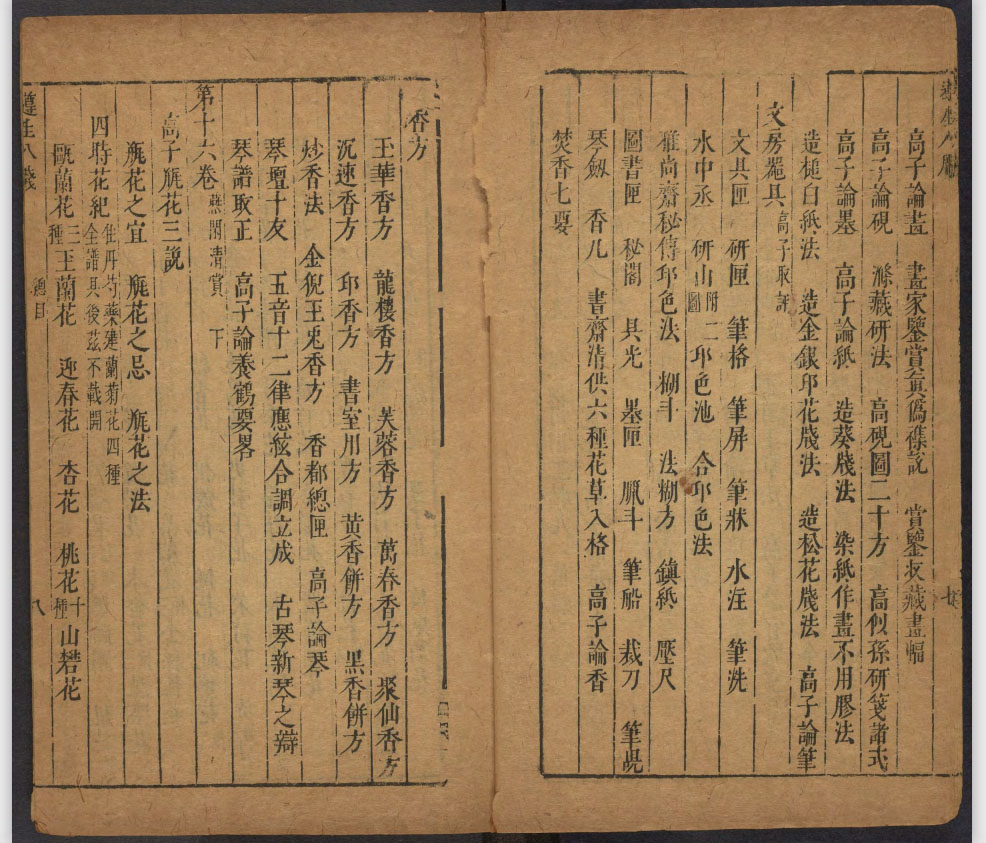 高子論畫　畫家鑒賞真僞襍說　賞鑒收藏畫幅
高子論硯　滌藏研法　高硯圖二十方　高似孫研箋諸式
高子論墨　高子論紙　造葵牋法　染紙作畫不用膠法
造槌白紙法　造金銀印花牋法　造松花牋法　高子論筆
文房器具高子取評
文具匣　研匣　筆格　筆屏　筆牀　水注　筆洗
水中丞　研山附圖　二印色池　合印色法
雅尚齋秘傳印色法　糊斗　法糊方　鎮紙　壓尺
圖書匣　秘閣　具光　墨匣　臘斗　筆船　裁刀　筆覘
琴劔　香几　書齋清供六種花草入格　高子論香
焚香七要
香方
玉華香方　龍樓香方　芙蓉香方　萬春香方　聚仙香方
沉速香方　印香方　書室用方　黃香餅方　黑香餅方
炒香法　金猊玉兎香方　香都總匣　高子論琴
琴壇十友　五音十二律應絃合調立成　古琴新琴之辯
琴譜取正　高子論養鶴要畧
第十六卷燕閒清賞　下
高子甁花三說
甁花之宜　甁花之忌　甁花之法
四時花紀牡丹芍藥建蘭菊花四種全譜具後茲不載開
甌蘭花三種　玉蘭花　迎春花　杏花　桃花十種　山礬花
遵生八牋
總目
八